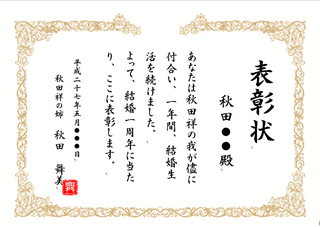 表彰状
秋田●●殿
あなたは秋田祥の我が儘に
付合い、一年間、結婚生
活を続けました。
よって、結婚一周年に当た
り、ここに表彰します。
平成二十七年五月●●日
秋田祥の姉 秋田 舞美